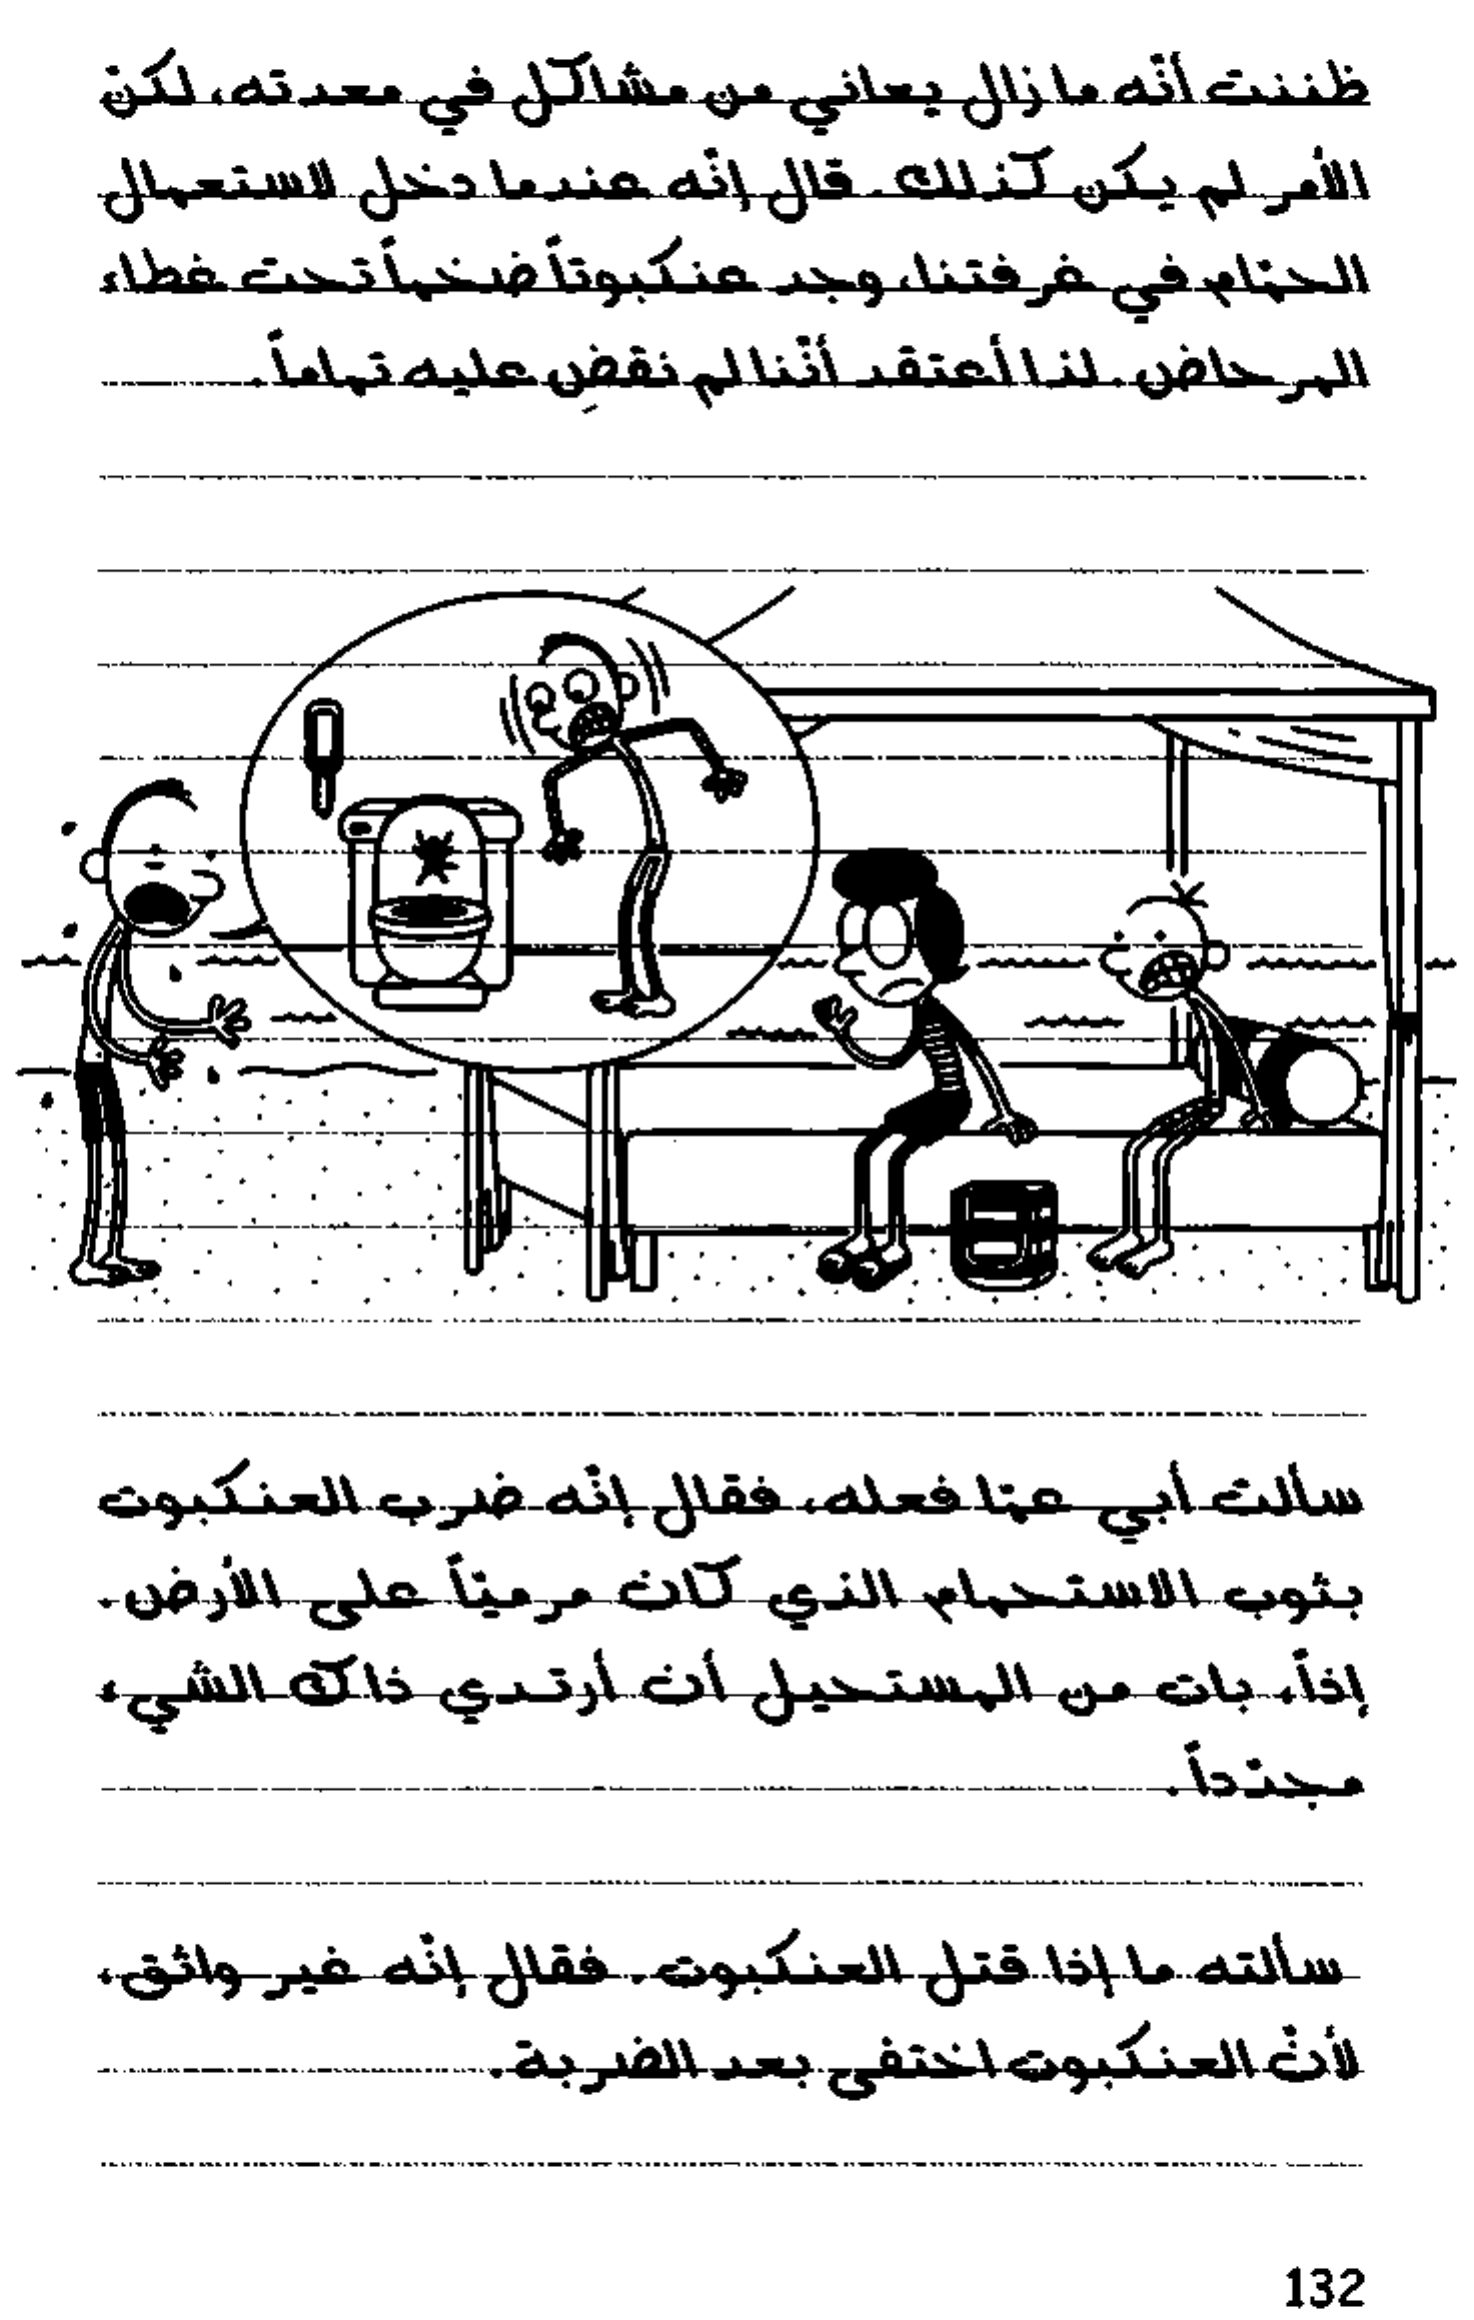 ظننت أنّه ما زال يعاني من مشاكل في معدته، لكنّ
الأمر لم يكن كذلك. قال إنّه عندما دخل لاستعمال
الحمّام في غرفتنا، وجد عنكبوتاً ضخماً تحت غطاء
المرحاض. لذا أعتقد أنّنا لم نقضِ عليه تماماً.
سألت أبي عمّا فعله، فقال إنّه ضرب العنكبوت
بثوب الاستحمام الذي كان مرميّاً على الأرض.
إذاً، بات من المستحيل أن أرتدي ذاك الشيء
مجدّداً.
سألته ما إذا قتل العنكبوت. فقال إنّه غير واثق،
لأنّ العنكبوت اختفى بعد الضربة.
132